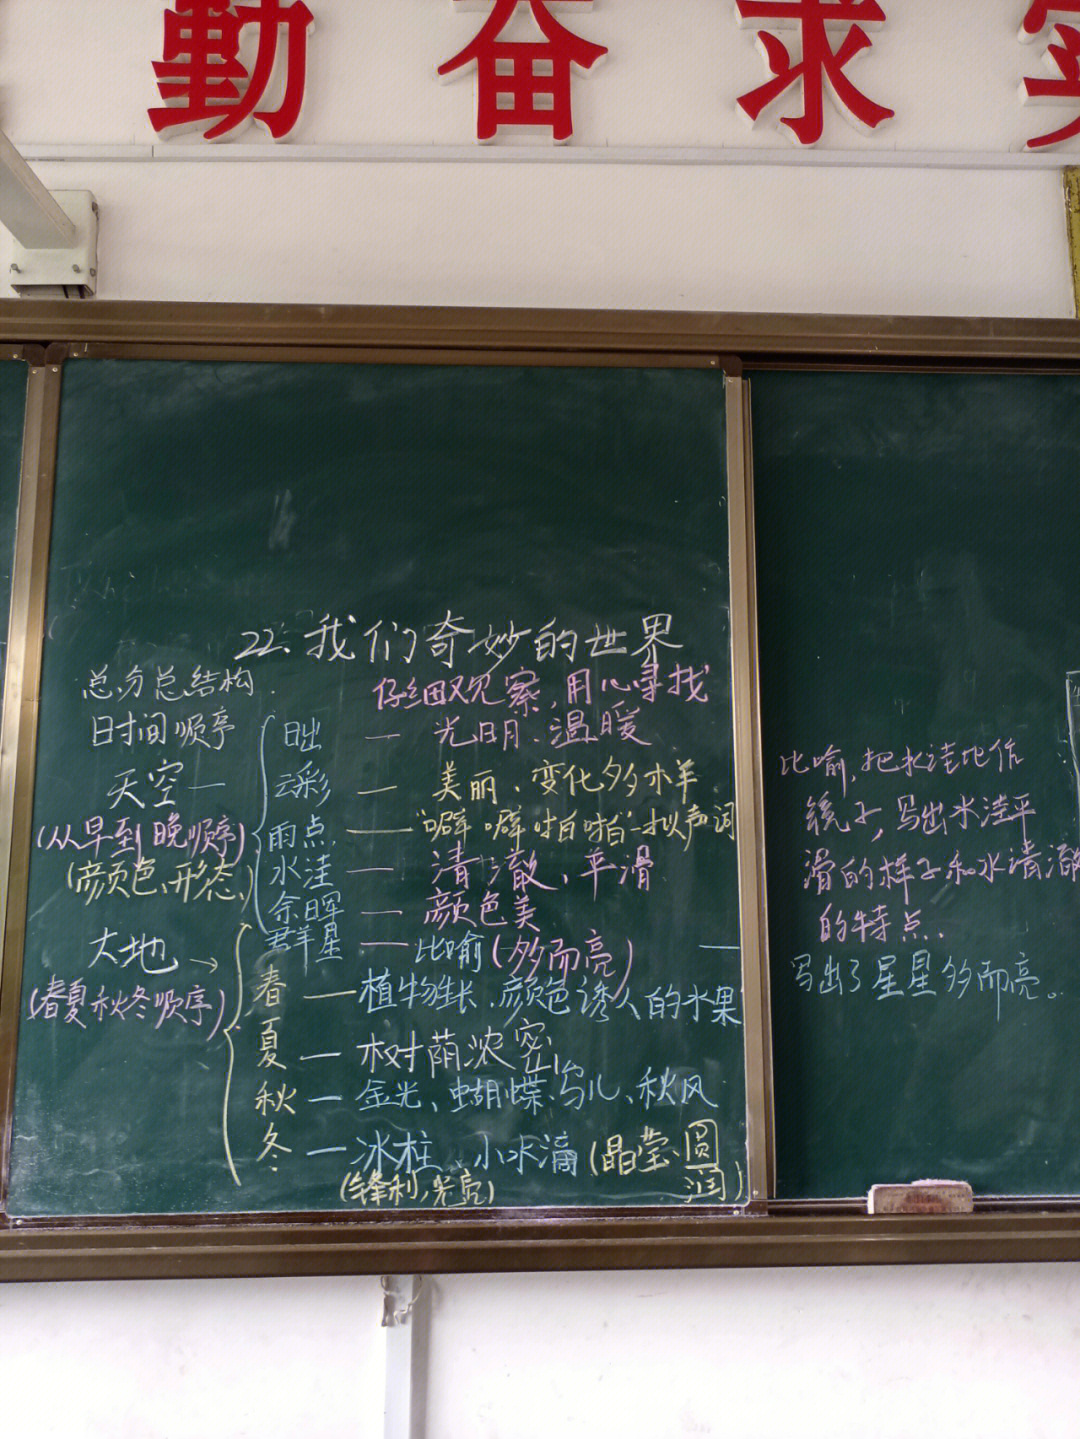 勤奋求实
22.我们奇妙的世界
总分总结构.
仔细观察,用心寻找
时间顺序
日出 — 光明.温暖
天空 —
云彩 — 美丽.变化多样
(从早到晚顺序)
雨点 — “噼噼啪啪”-拟声词
(颜色、形态)
水洼 — 清澈、平滑
余晖 — 颜色美
大地 →
群星 — 比喻(多而亮) —
(春夏秋冬顺序)
春 — 植物生长.颜色诱人的水果
夏 — 树荫浓密
秋 — 金光、蝴蝶.鸟儿、秋风
冬 — 冰柱、小水滴(晶莹.圆润)
(锋利,光亮)
比喻,把水洼比作
镜子,写出水洼平
滑的样子和水清澈
的特点.
写出了星星多而亮。